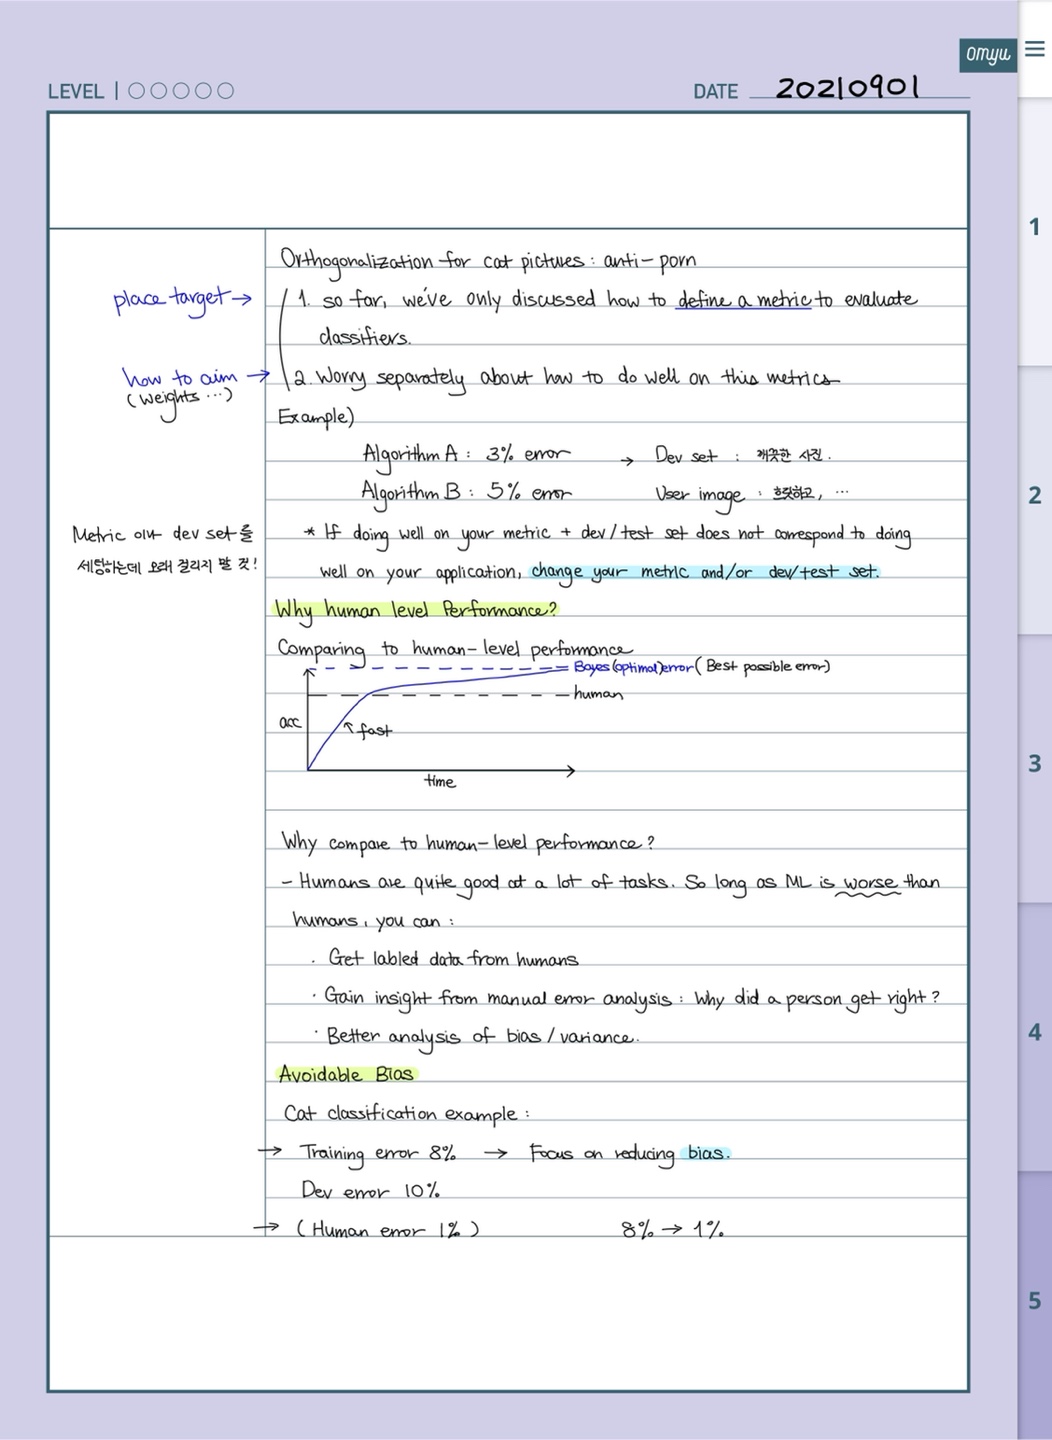 omyu
LEVEL
DATE 20210901
Orthogonalization for cat pictures : anti-porn
place target →
1. so far, we've only discussed how to define a metric to evaluate
classifiers.
how to aim →
(weights ...)
2. Worry separately about how to do well on this metrics
Example)
Algorithm A : 3% error → Dev set : 깨끗한 사진.
Algorithm B : 5% error User image : 흐릿하고, ...
Metric 이나 dev set을
세팅하는데 오래 걸리지 말 것!
* If doing well on your metric + dev/test set does not correspond to doing
well on your application, change your metric and/or dev/test set.
Why human level Performance?
Comparing to human-level performance
Bayes (optimal) error ( Best possible error)
human
acc
fast
time
Why compare to human-level performance?
- Humans are quite good at a lot of tasks. So long as ML is worse than
humans, you can :
· Get labled data from humans
· Gain insight from manual error analysis : Why did a person get right?
· Better analysis of bias / variance.
Avoidable Bias
Cat classification example :
→ Training error 8% → Focus on reducing bias.
Dev error 10%
→ ( Human error 1% ) 8% → 1%
1
2
3
4
5